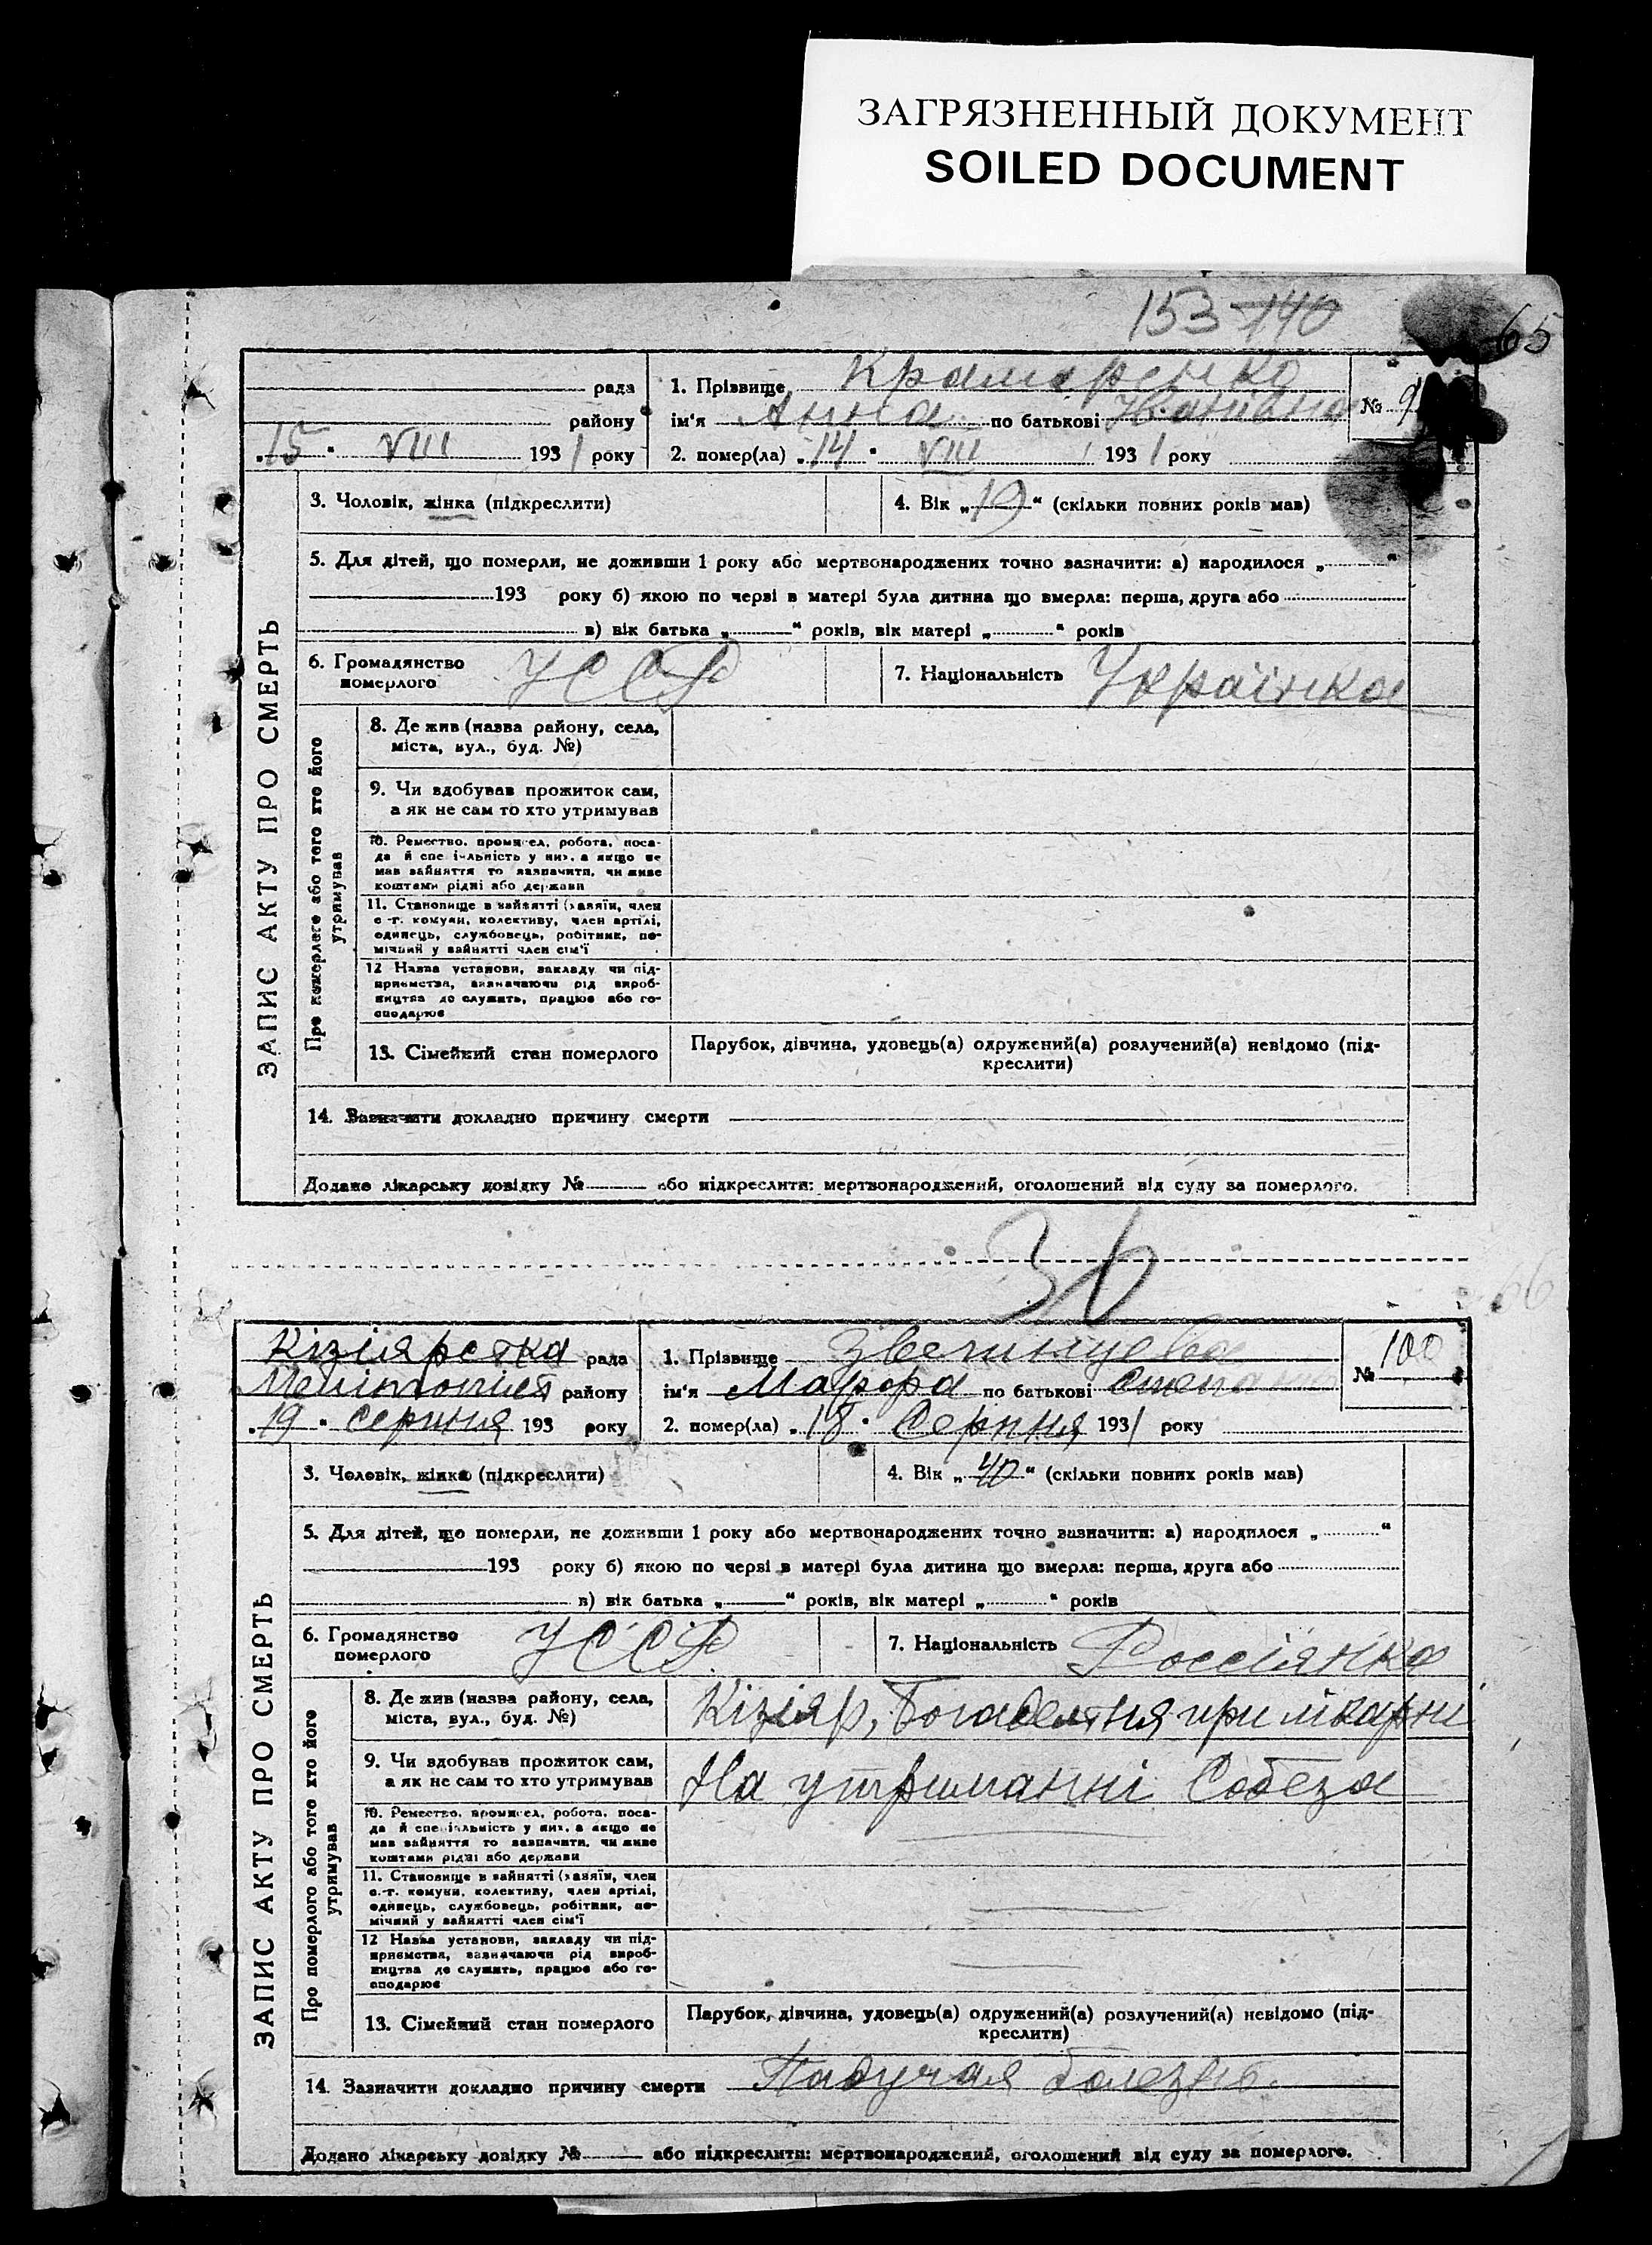 ЗАГРЯЗНЕННЫЙ ДОКУМЕНТ
SOILED DOCUMENT
153 140
65
рада
району
15 " VIII 1931 року
1. Прізвище Краморенко
ім'я Анна по батькові
2. помер(ла) „14 " VIII 1931 року
№ 9
ЗАПИС АКТУ ПРО СМЕРТЬ
3. Чоловік, жінка (підкреслити)
4. Вік „19“ (скільки повних років мав)
5. Для дітей, що померли, не доживши 1 року або мертвонароджених точно зазначити: а) народилося „ “
193 року б) якою по черзі в матері була дитина що вмерла: перша, друга або
в) вік батька „ “ років, вік матері „ “ років
6. Громадянство померлого УССР
7. Національність Українка
Про померлого або того хто його утримував
8. Де жив (назва району, села,
міста, вул., буд. №)
9. Чи здобував прожиток сам,
а як не сам то хто утримував
10. Ремество, промисел, робота, поса-
да й спеціяльність у них, а якщо не
мав зайняття то зазначити, чи живе
коштами рідні або держави
11. Становище в зайнятті (хазяїн, член
с.-г. комуни, колективу, член артілі,
одинець, службовець, робітник, по-
мічний у зайнятті член сім'ї
12 Назва установи, закладу чи під-
приємства, зазначаючи рід вироб-
ництва де служить, працює або го-
сподарює
13. Сімейний стан померлого
Парубок, дівчина, удовець(а) одружений(а) розлучений(а) невідомо (під-
креслити)
14. Зазначити докладно причину смерти
Додано лікарську довідку № або підкреслити: мертвонароджений, оголошений від суду за померлого.
36
66
Кізіярська рада
району
„19 " серпня 193 року
1. Прізвище Звегинцева
ім'я Марфа по батькові
2. помер(ла) „18 " Серпня 1931 року
№ 100
ЗАПИС АКТУ ПРО СМЕРТЬ
3. Чоловік, жінка (підкреслити)
4. Вік „40“ (скільки повних років мав)
5. Для дітей, що померли, не доживши 1 року або мертвонароджених точно зазначити: а) народилося „ “
193 року б) якою по черзі в матері була дитина що вмерла: перша, друга або
в) вік батька „ “ років, вік матері „ “ років
6. Громадянство померлого УССР
7. Національність Россіянка
Про померлого або того хто його утримував
8. Де жив (назва району, села,
міста, вул., буд. №)
Кізіяр, Богадельня при лікарні
9. Чи здобував прожиток сам,
а як не сам то хто утримував
На утриманні Собеза
10. Ремество, промисел, робота, поса-
да й спеціяльність у них, а якщо не
мав зайняття то зазначити, чи живе
коштами рідні або держави
11. Становище в зайнятті (хазяїн, член
с.-г. комуни, колективу, член артілі,
одинець, службовець, робітник, по-
мічний у зайнятті член сім'ї
12 Назва установи, закладу чи під-
приємства, зазначаючи рід вироб-
ництва де служить, працює або го-
сподарює
13. Сімейний стан померлого
Парубок, дівчина, удовець(а) одружений(а) розлучений(а) невідомо (під-
креслити)
14. Зазначити докладно причину смерти Падучая болезнь.
Додано лікарську довідку № або підкреслити: мертвонароджений, оголошений від суду за померлого.